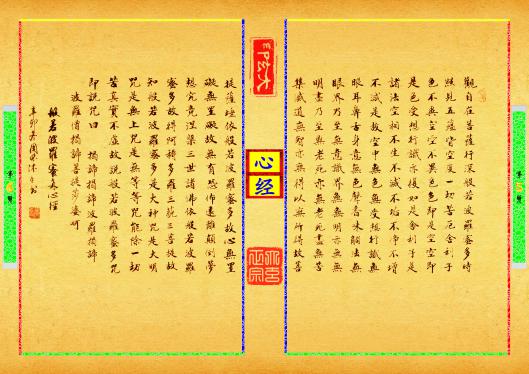 觀自在菩薩行深般若波羅蜜多時
照見五蘊皆空度一切苦厄舍利子
色不異空空不異色色即是空空即
是色受想行識亦復如是舍利子是
諸法空相不生不滅不垢不淨不增
不減是故空中無色無受想行識無
眼耳鼻舌身意無色聲香味觸法無
眼界乃至無意識界無無明亦無無
明盡乃至無老死亦無老死盡無苦
集滅道無智亦無得以無所得故菩
心经
提薩埵依般若波羅蜜多故心無罣
礙無罣礙故無有恐怖遠離顛倒夢
想究竟涅槃三世諸佛依般若波羅
蜜多故得阿耨多羅三藐三菩提故
知般若波羅蜜多是大神咒是大明
咒是無上咒是無等等咒能除一切
苦真實不虛故說般若波羅蜜多咒
即說咒曰 揭諦揭諦波羅揭諦
波羅僧揭諦菩提薩婆訶
般若波羅蜜多心經
辛卯